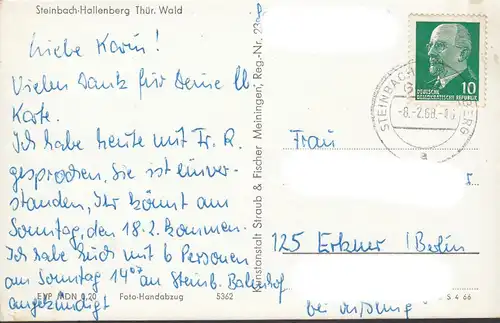 Steinbach-Hallenberg Thür. Wald
Liebe Karin!
Vielen Dank für Deine lb.
Karte.
Ich habe heute mit Fr. R.
gesprochen, sie ist einver-
standen, Ihr könnt am
Sonntag, den 18.2. kommen.
Ich habe Euch mit 6 Personen
am Sonntag 14⁰⁷ am Steinb. Bahnhof
angekündigt
EVP MDN 0,20 Foto-Handabzug 5362
Kunstanstalt Straub & Fischer Meiningen, Reg.-Nr.
STEINBACH-HALLENBERG
-8.-2.68.-16
a
10
DEUTSCHE
DEMOKRATISCHE REPUBLIK
Frau
125 Erkner /Berlin
bei
S 4 66